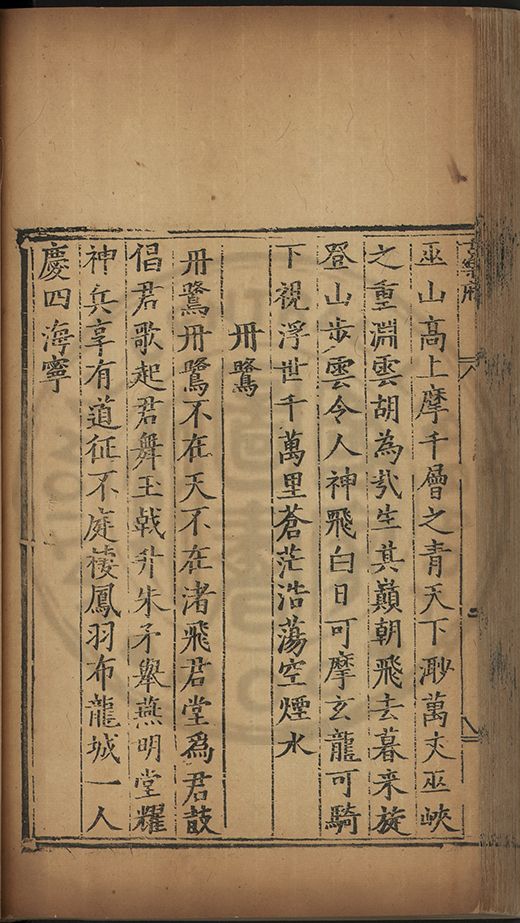 巫山高上摩千層之青天下㴾萬丈巫峽
之重淵雲胡為㢤生其巔朝飛去暮来旋
登山步雲令人神飛白日可摩玄龍可騎
下視浮世千萬里蒼茫浩蕩空煙水
丹鷺
丹鷺丹鷺不在天不在渚飛君堂爲君鼓
倡君歌起君舞玉戟升朱矛舉燕明堂耀
神兵享有道征不庭棲鳳羽布龍城一人
慶四海寧